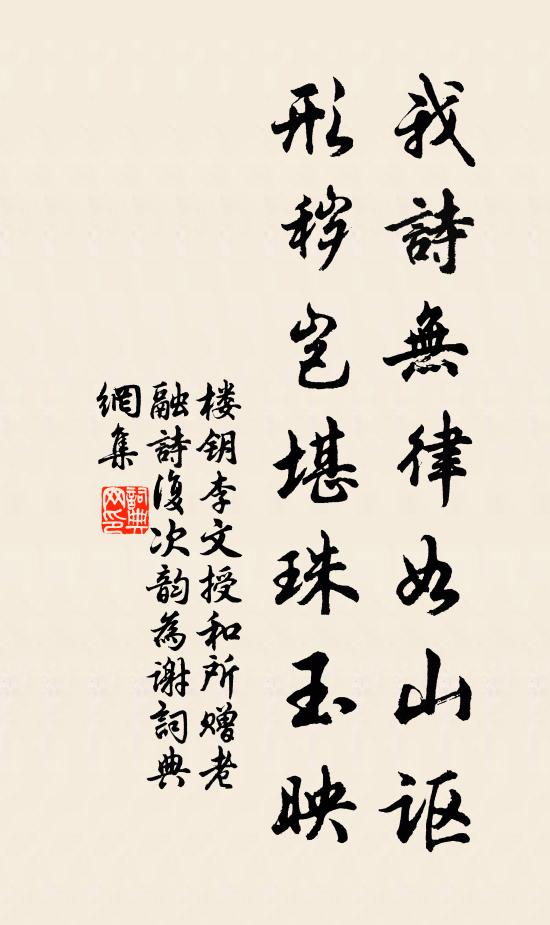 我詩無律如山讴
形秽岂堪珠玉映
楼钥李文授和所赠老
融詩復次韵為谢詞典
網集
詞典网印